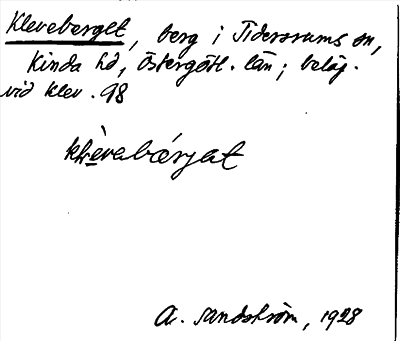 Kleveberget, berg i Tidersrums sn,
Kinda hd, Östergötl. län; beläg.
vid Klev. 98
A. Sandström, 1928